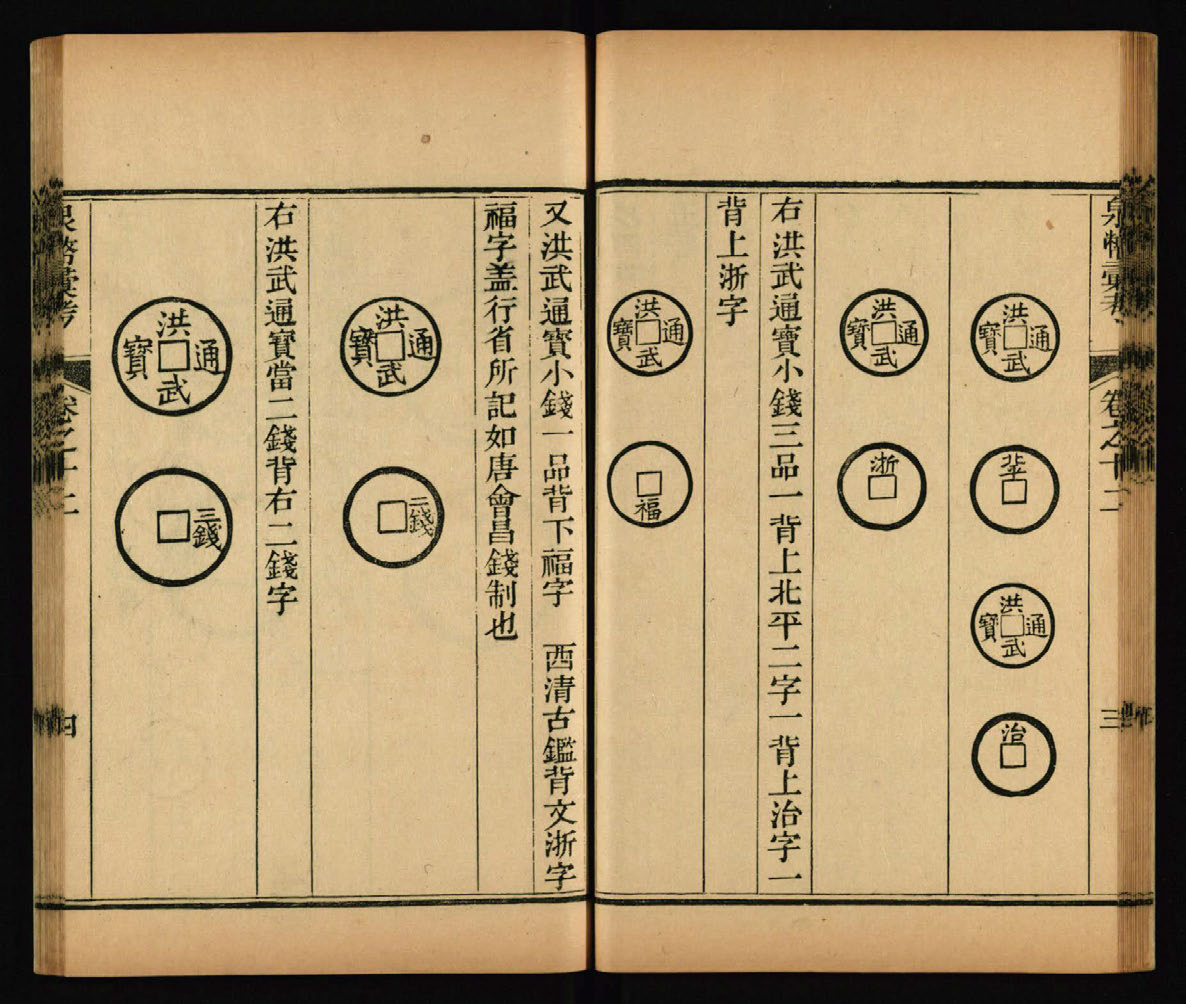 泉幣彙考
卷之十二
三
洪武通寶
北平
洪武通寶
治
洪武通寶
浙
右洪武通寶小錢三品一背上北平二字一背上治字一
背上浙字
洪武通寶
福
又洪武通寶小錢一品背下福字 西清古鑑背文浙字
福字盖行省所記如唐會昌錢制也
洪武通寶
二錢
右洪武通寶當二錢背右二錢字
洪武通寶
三錢
泉幣彙考
卷之十二
四